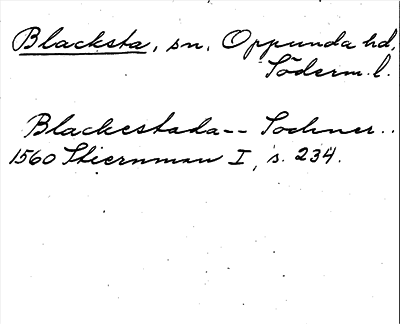 Blacksta, sn, Oppunda hd,
Söderm. l.
Blackestada-- Sochner..
1560 Stiernman I, s. 234.